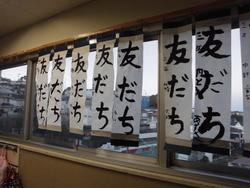 友だち
友だち
友だち
友だち
友だち
友だち
友だち